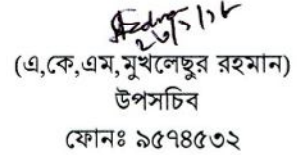 (এ,কে,এম,মুখলেছুর রহমান)
উপসচিব
ফোনঃ ৯৫৭৪৫৩২